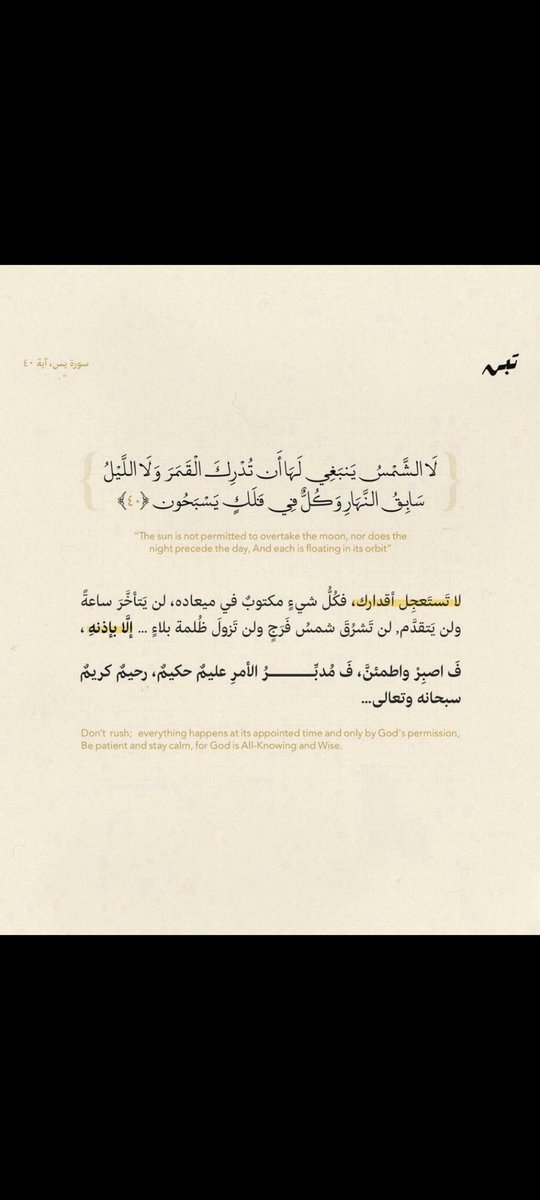 سورة يس، آية ٤٠
لَا الشَّمْسُ يَنبَغِي لَهَا أَن تُدْرِكَ الْقَمَرَ وَلَا اللَّيْلُ
سَابِقُ النَّهَارِ وَكُلٌّ فِي فَلَكٍ يَسْبَحُون ﴿٤٠﴾
“The sun is not permitted to overtake the moon, nor does the
night precede the day, And each is floating in its orbit”
لا تَستَعجِل أقدارك، فكُلُّ شيءٍ مكتوبٌ في ميعاده، لن يَتأخَّرَ ساعةً
ولن يَتقدَّم, لن تَشرُقَ شمسُ فَرَجٍ ولن تَزولَ ظُلمة بلاءٍ ... إلَّا بإذنهِ ،
فَ اصبِرْ واطمئنَّ، فَ مُدبِّـــــــــرُ الأمرِ عليمٌ حكيمٌ، رحيمٌ كريمٌ
سبحانه وتعالى...
Don’t rush; everything happens at its appointed time and only by God's permission,
Be patient and stay calm, for God is All-Knowing and Wise.